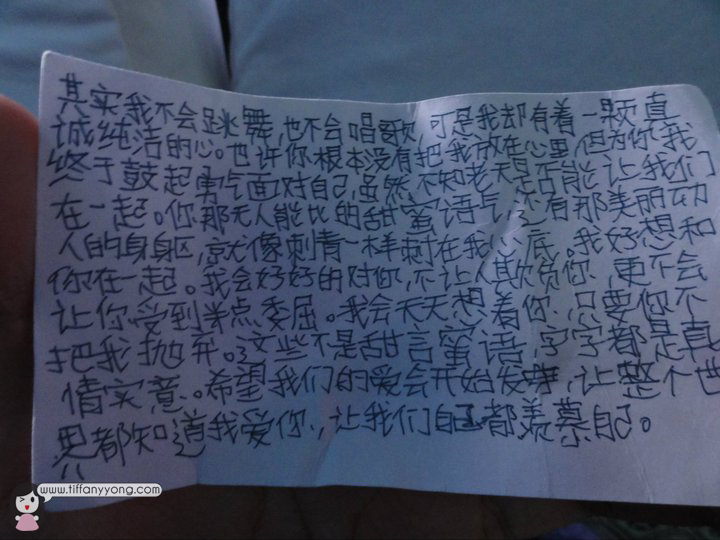 其实我不会跳舞,也不会唱歌,可是我却有着一颗真
诚纯洁的心。也许你根本没有把我放在心里,但为你,我
终于鼓起勇气面对自己,虽然不知老天是否能让我们
在一起。你那无人能比的甜蜜语气,还有那美丽动
人的身躯,就像刺青一样刺在我心底。我好想和
你在一起。我会好好的对你,不让人欺负你,更不会
让你受到半点委屈。我会天天想着你,只要你不
把我抛弃。这些不是甜言蜜语,字字都是真
情实意。希望我们的爱会开始发芽,让整个世
界都知道我爱你,让我们自己都羡慕自己。
www.tiffanyyong.com